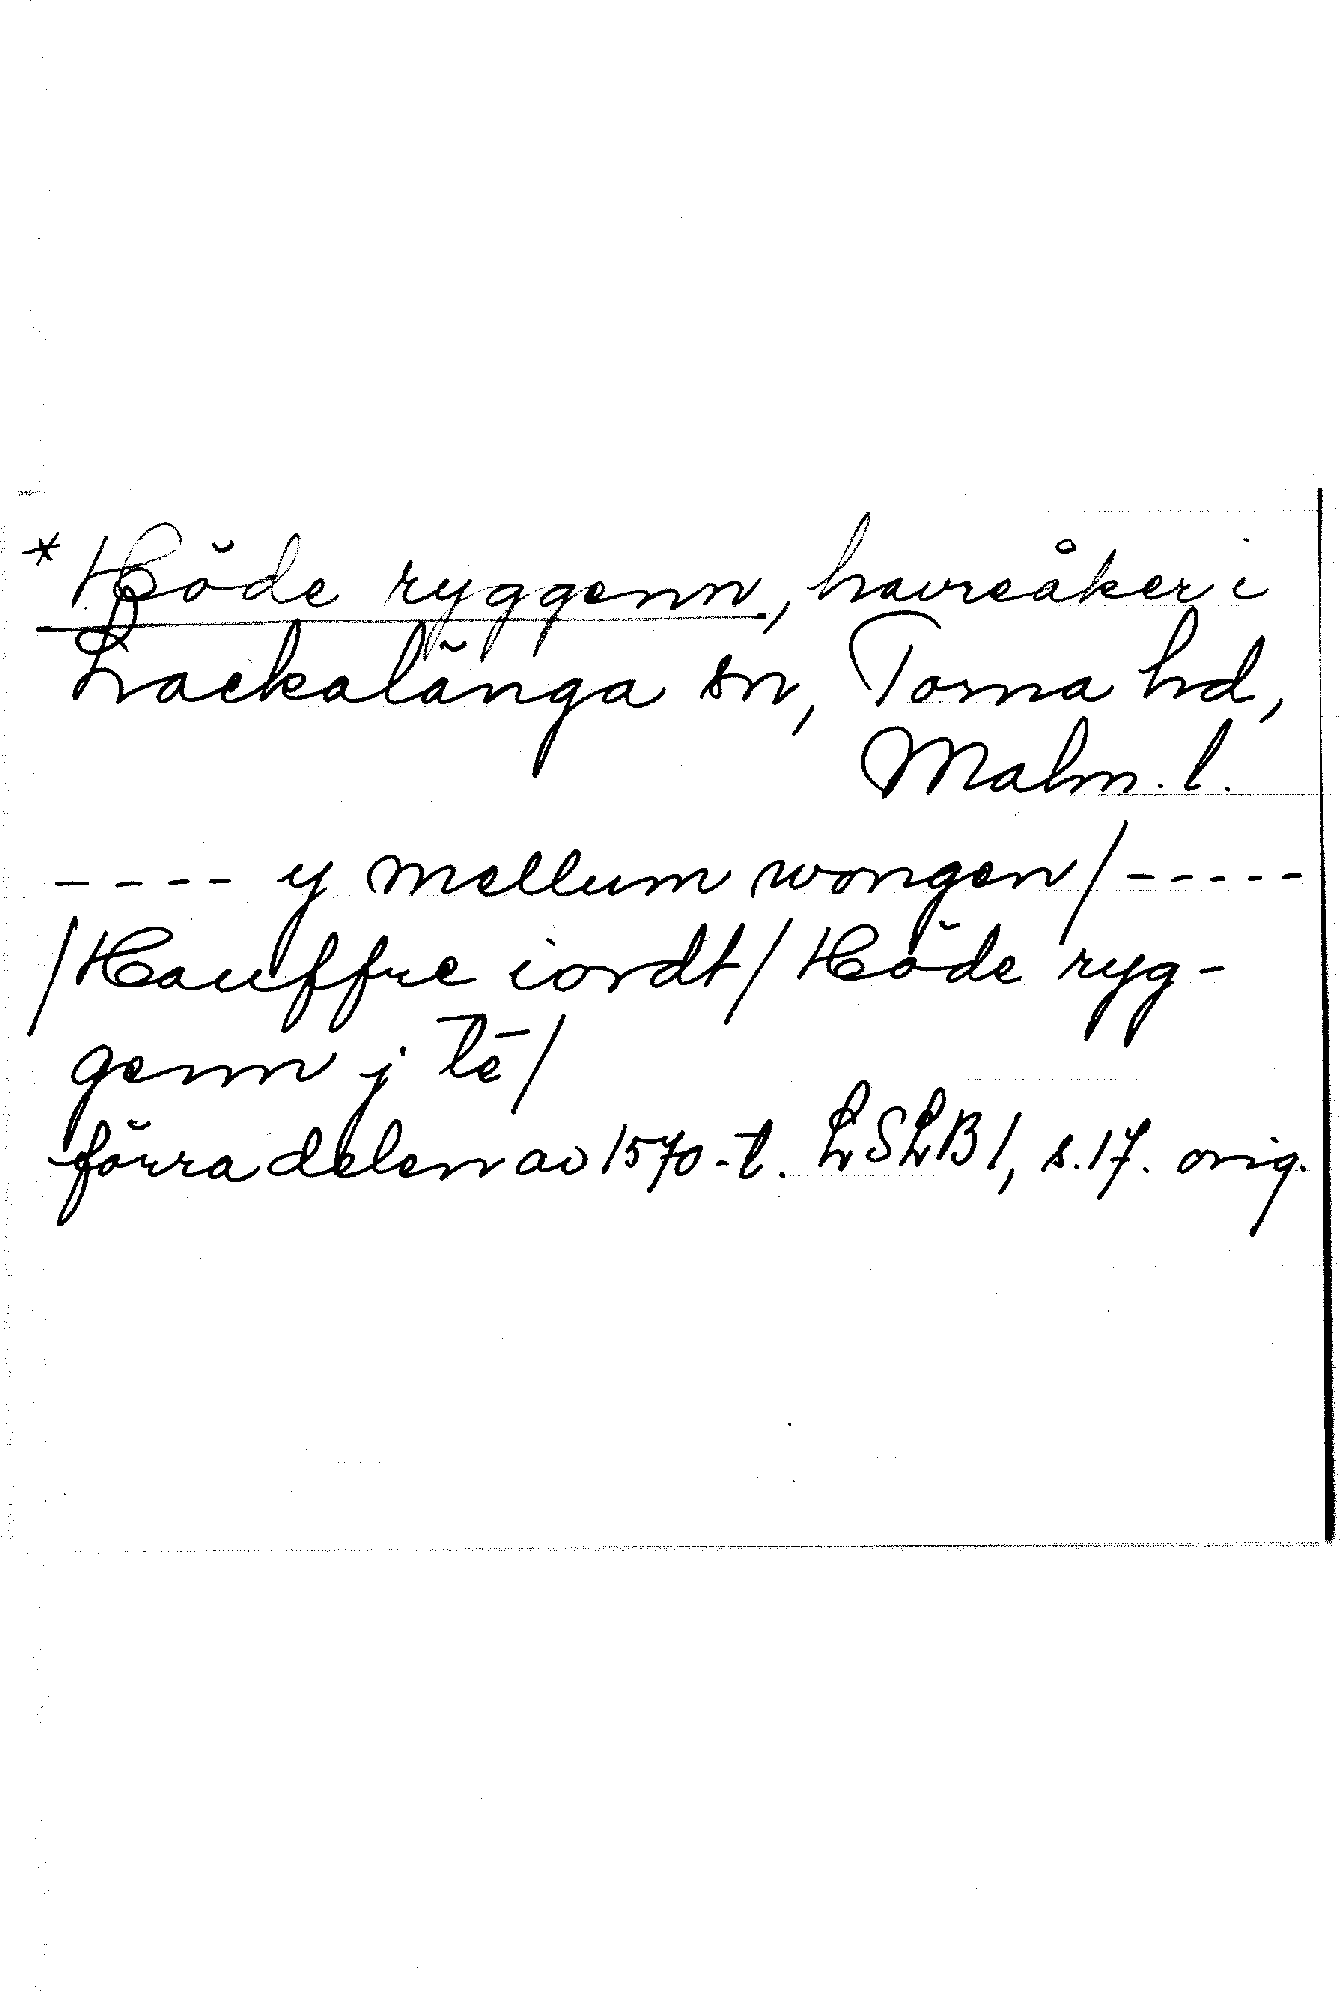 * Höde ryggenn, havreåker i
Lackalänga sn, Torna hd,
Malm. l.
---- y mellum wongen/-----
/Hauffre iordt/ Höde ryg-
genn j tē/
förra delen av 1570-t. LSLB 1, s. 17. orig.